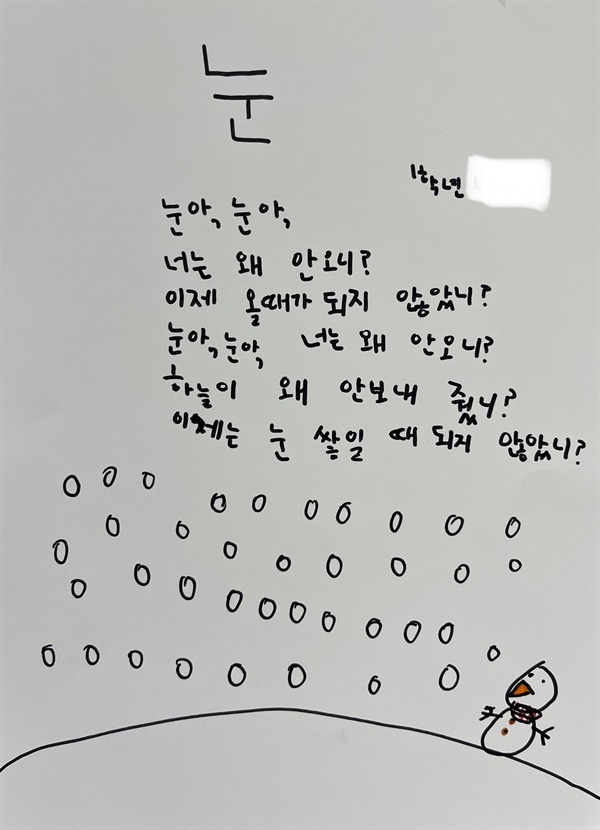 눈
1학년
눈아, 눈아,
너는 왜 안오니?
이제 올때가 되지 않았니?
눈아, 눈아, 너는 왜 안오니?
하늘이 왜 안보내 줬니?
이제는 눈 쌓일 때 되지 않았니?